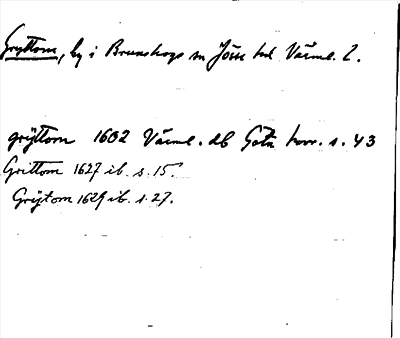 Gryttom, by i Brunskogs sn Jösse hd. Värml. l.
grÿttom 1602 Värml. db Göta hovr. s. 43
Grittom 1627 ib. s. 15.
Grÿtom 1629 ib. s. 27.